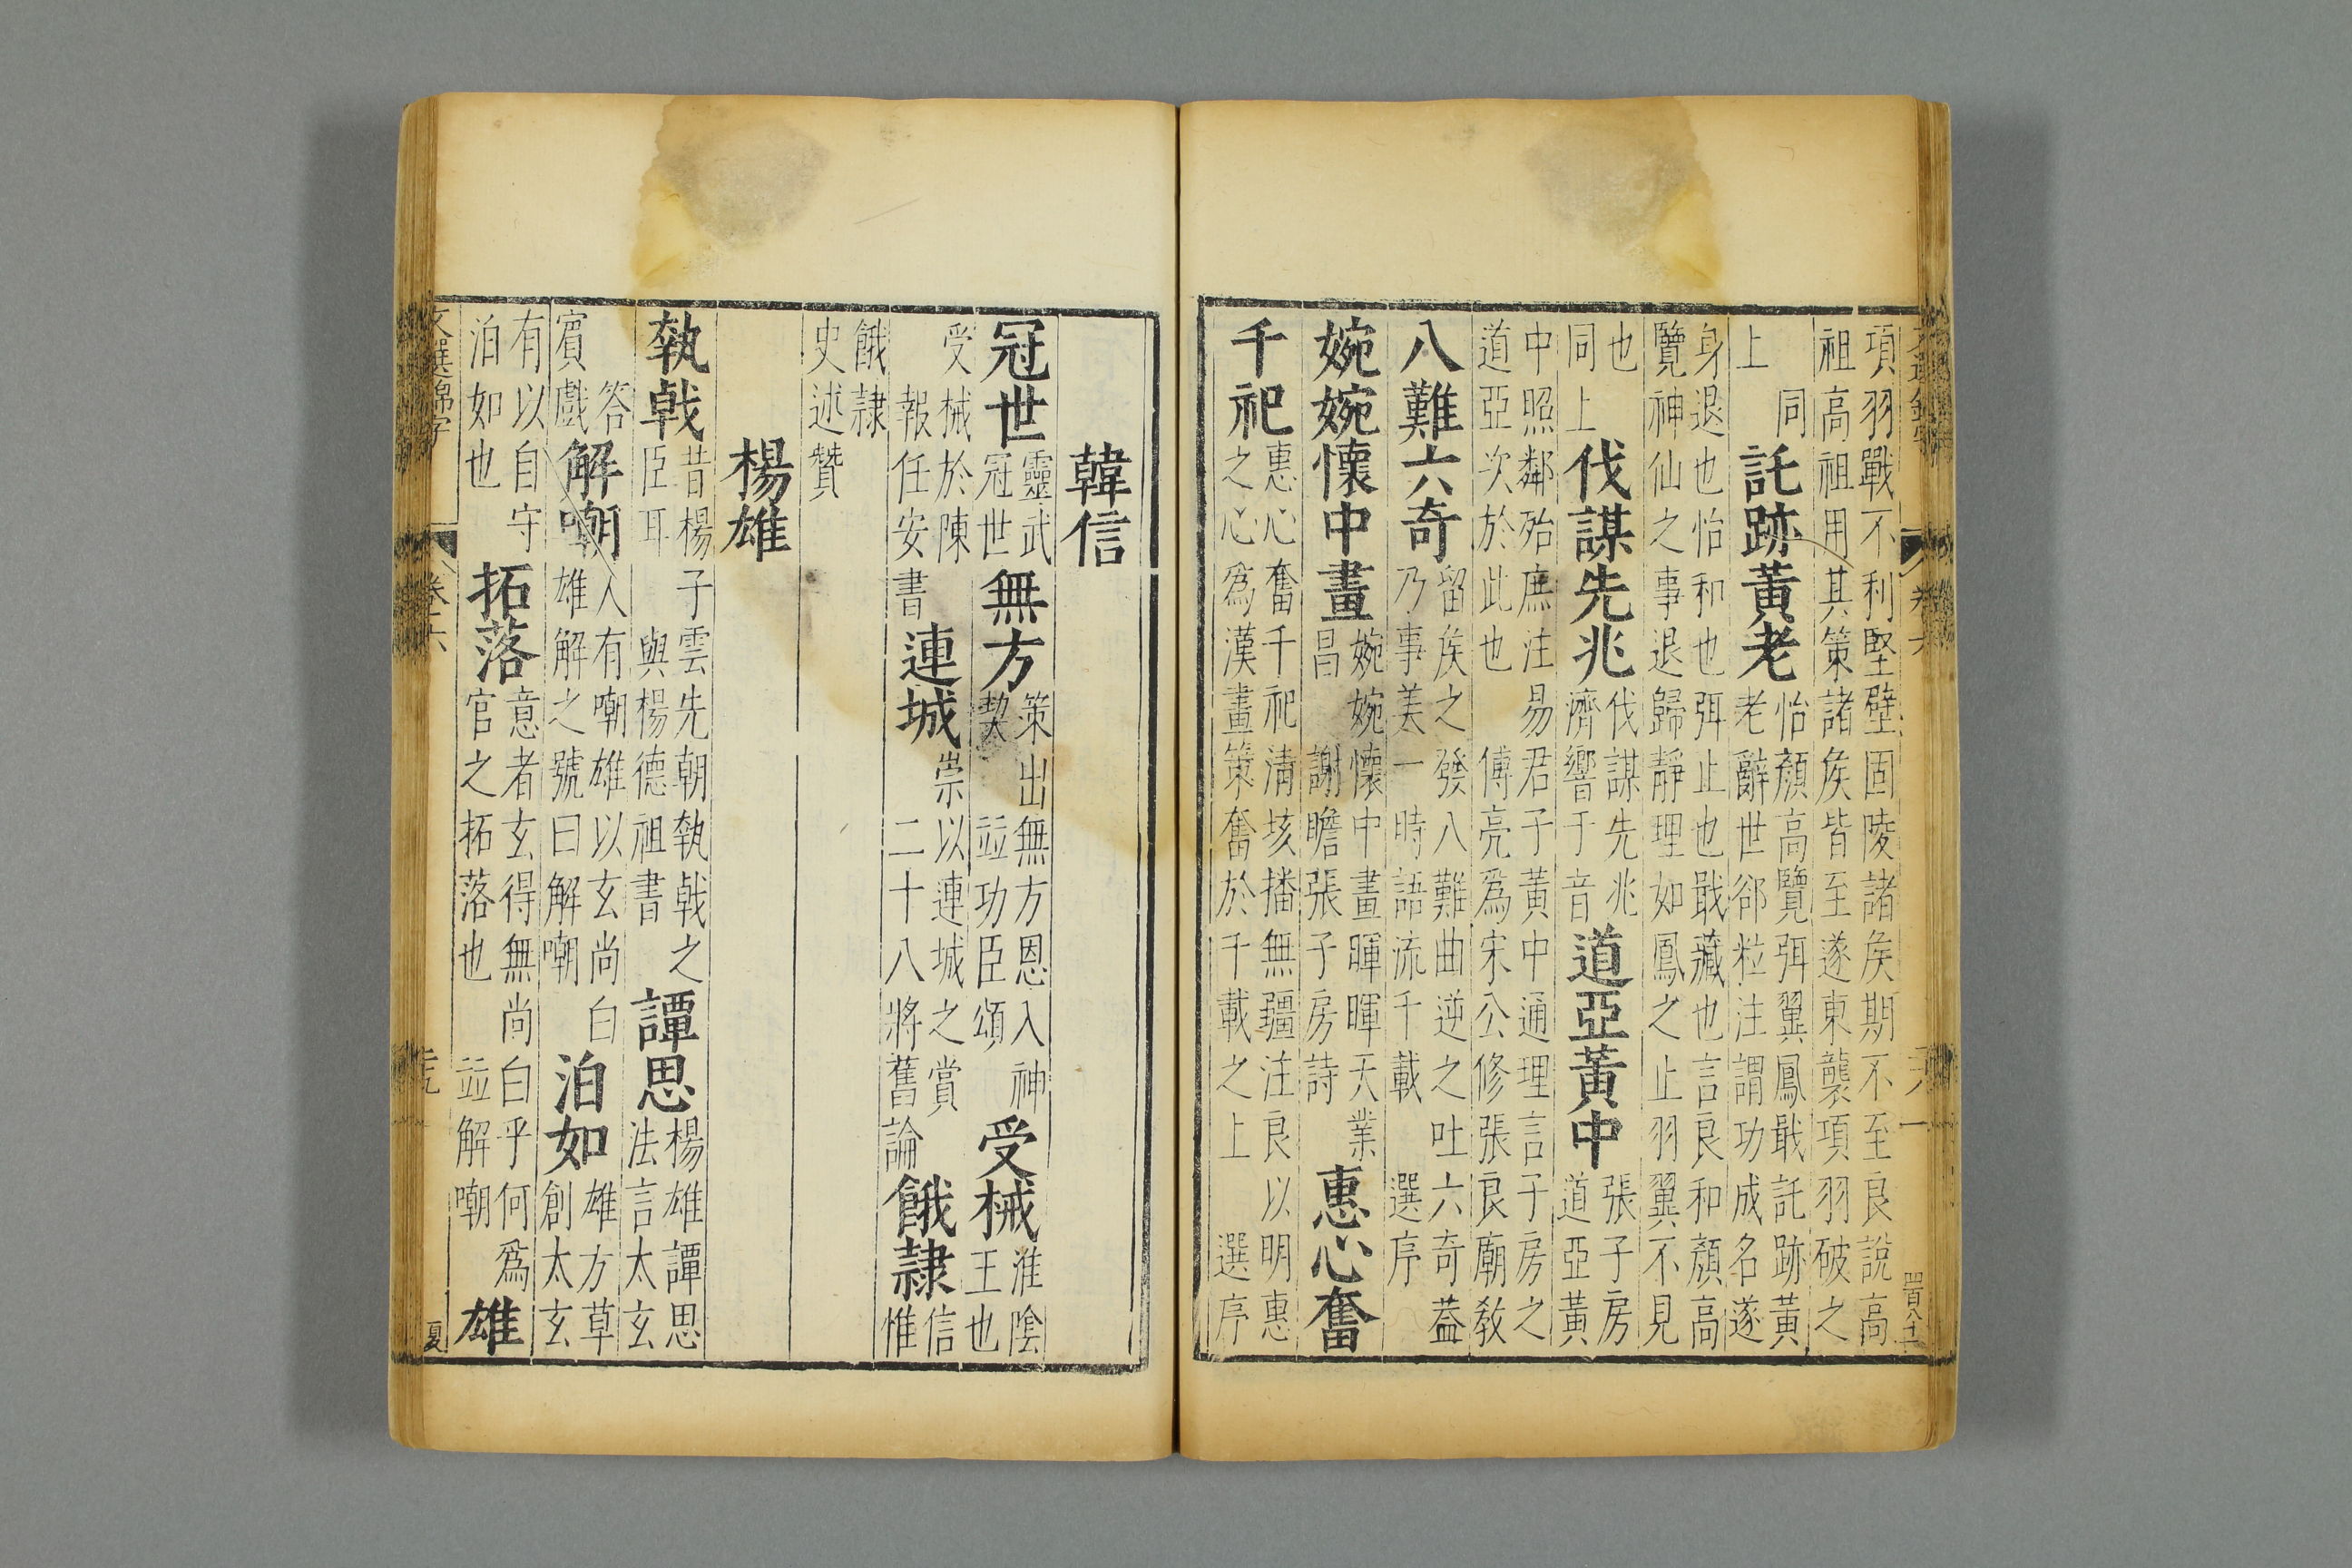 項羽戰不利堅壁固陵諸矦期不至良說高
祖高祖用其策諸矦皆至遂東襲項羽破之
同上 託跡黃老 怡顏高覽弭翼鳳戢託跡黃老辭世郤粒注謂功成名遂
身退也怡和也弭止也戢藏也言良和顏高
覽神仙之事退歸靜理如鳳之止羽翼不見
也同上 伐謀先兆 伐謀先兆濟響于音 道亞黃中 張子房道亞黃
中照鄰殆庶注易君子黃中通理言子房之
道亞次於此也 傅亮爲宋公修張良廟敎
八難六奇 留矦之發八難曲逆之吐六奇葢乃事美一時語流千載 選序
婉婉懷中畫 婉婉懷中畫暉暉天業昌 謝瞻張子房詩 惠心奮
千祀 惠心奮千祀清埃播無疆注良以明惠之心爲漢畫策奮於千載之上 選序
韓信
冠世 靈武冠世 無方 策出無方恩入神契 並功臣頌 受械 淮陰王也
受械於陳 報任安書 連城 崇以連城之賞 二十八將舊論 餓隷 信惟
餓隷 史述贊
楊雄
執戟 昔楊子雲先朝執戟之臣耳 與楊德祖書 譚思 楊雄譚思法言太玄
答賓戲 解嘲 人有嘲雄以玄尚白雄解之號曰解嘲 泊如 雄方草創太玄
有以自守泊如也 拓落 意者玄得無尚白乎何爲官之拓落也 並解嘲 雄
文選錦字 夏